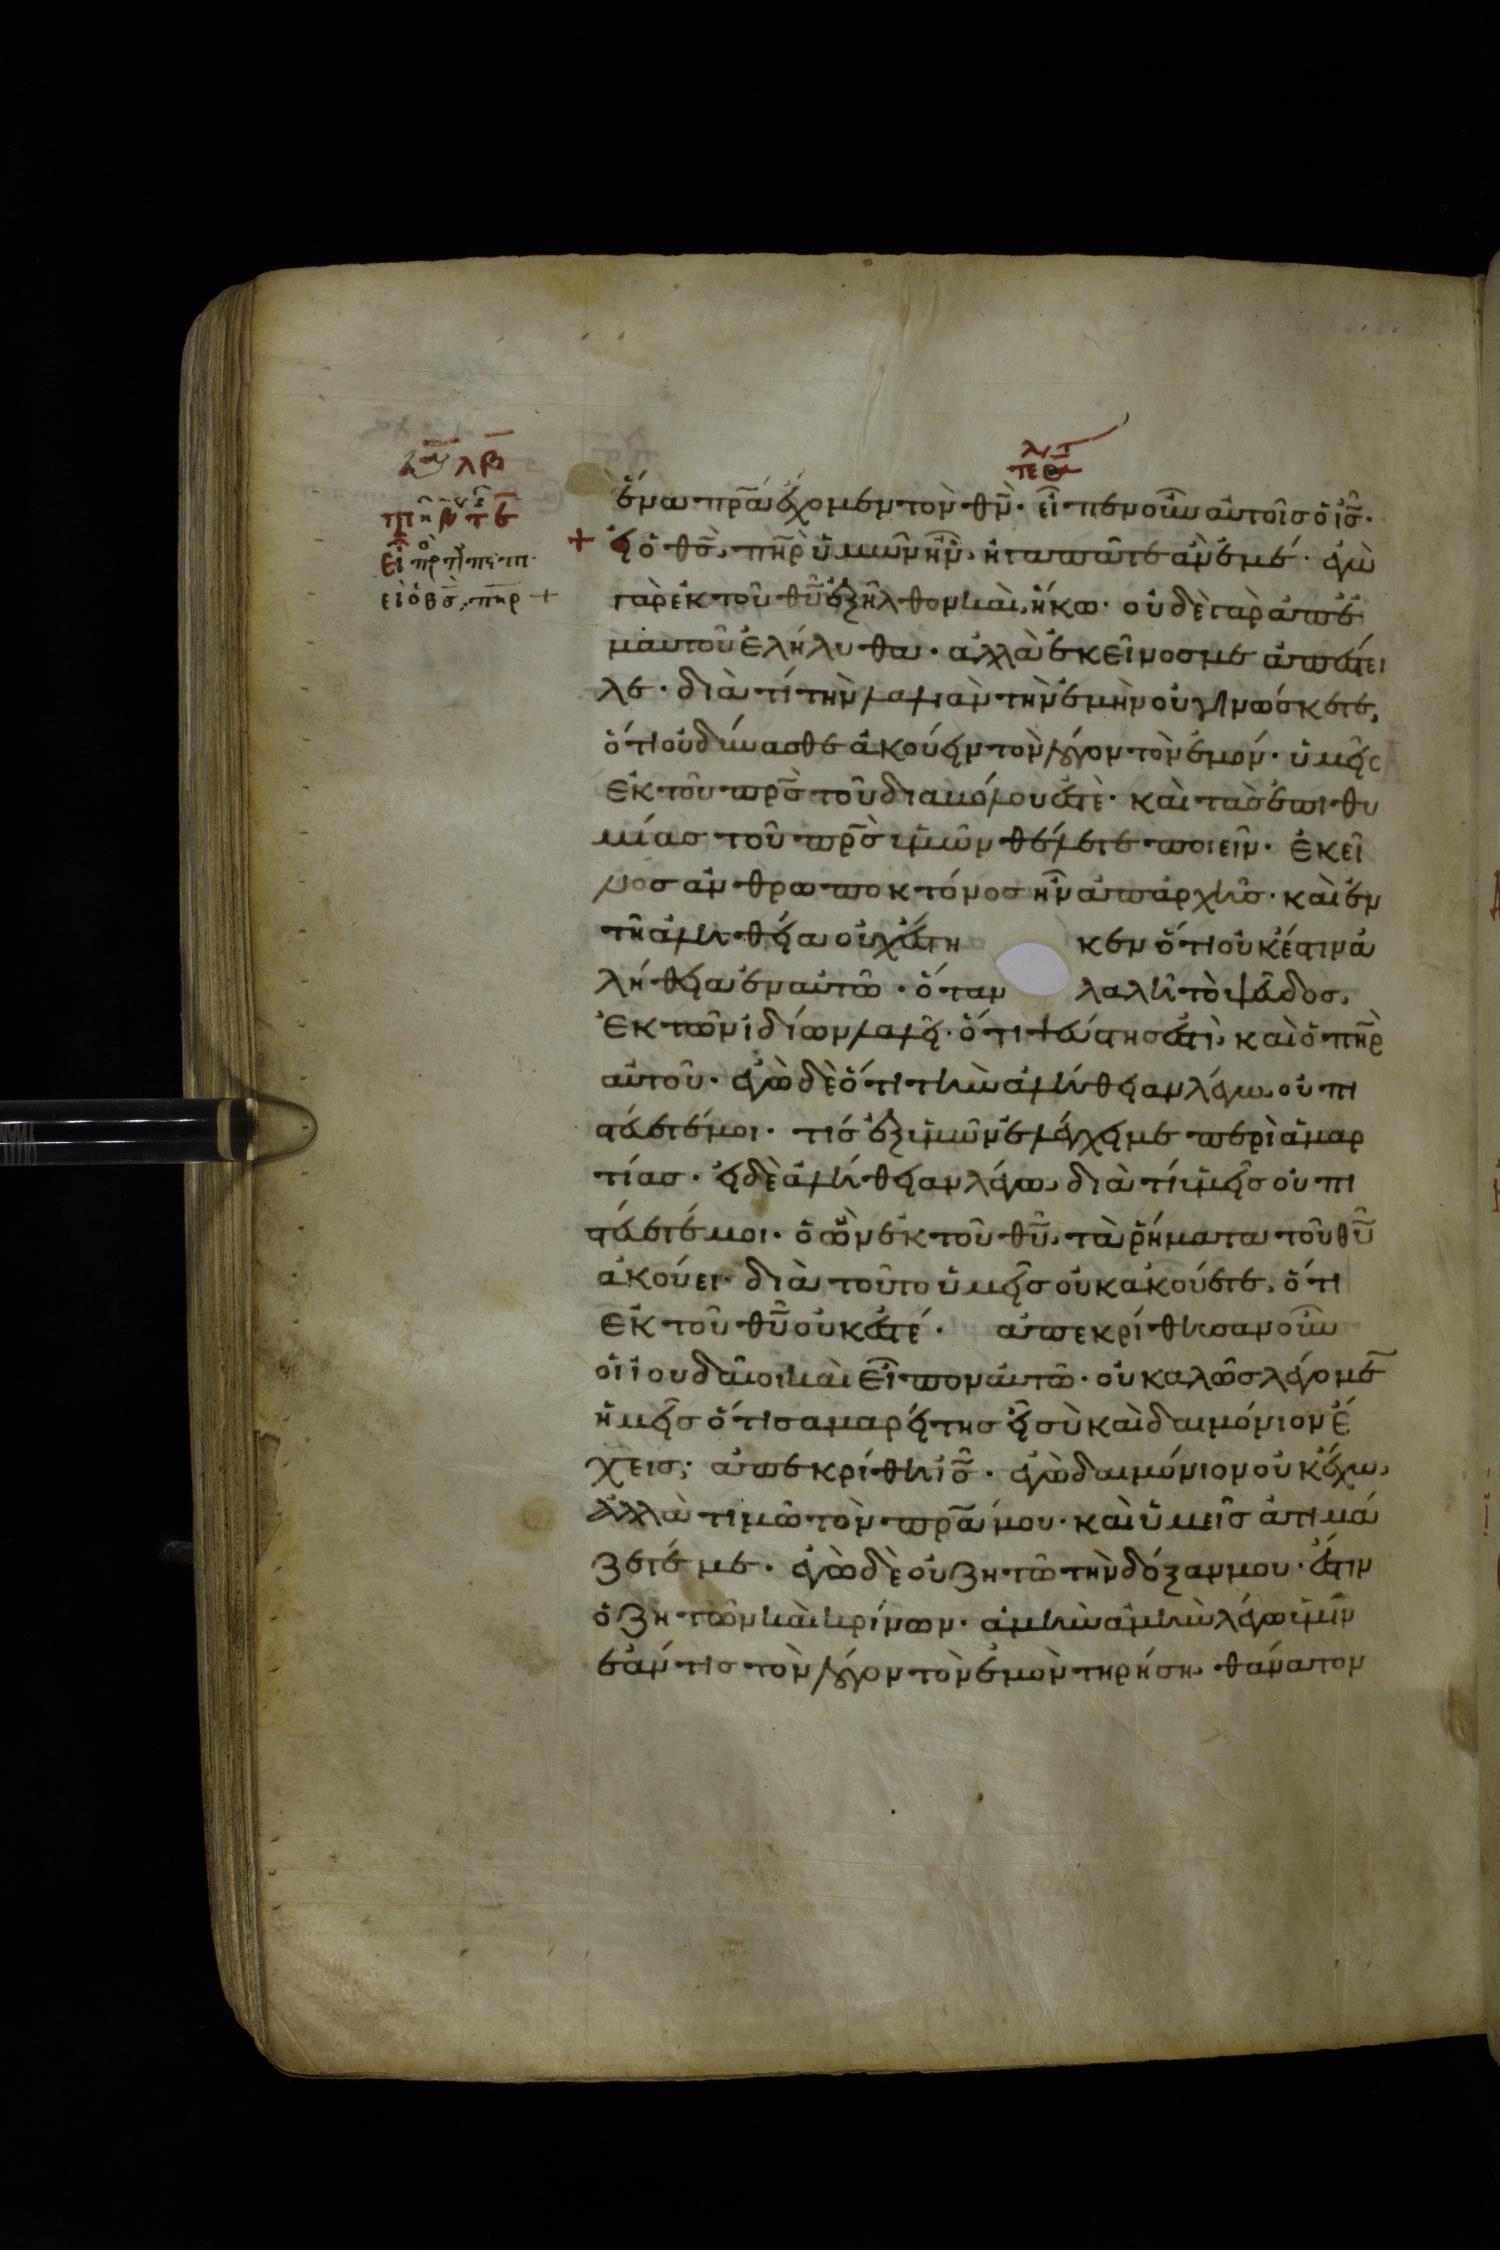 λβ
τῆ β τ ε
εἶπ ὁ κ̅ς πρ
εἰ ὁ θ̅σ̀, π̅η̅ρ +
τελ
ἕνα π̅ρ̅α̅ ἔχομεν τὸν θ̅ν̅· εἶπεν οὖν αὐτοῖσ ὁ ἰ̅σ̅·
+ εἰ ὁ θ̅σ̅, π̅η̅ρ̅ ὑμῶν ἦν, ἠγαπᾶτε ἂν ἐμέ· ἐγὼ
γὰρ ἐκ τοῦ θ̅υ̅ ἐξῆλθον καὶ ἥκω· οὐδὲ γὰρ ἀπ' ἐ
μαυτοῦ ἐλήλυθα· ἀλλὰ ἐκεῖνοσ με ἀπέστει
λε· διὰ τί τὴν λαλιὰν τὴν ἐμὴν οὐ γινώσκετε,
ὅτι οὐ δύνασθε ἀκούειν τὸν λόγον τὸν ἐμόν· ὑμεῖς
ἐκ τοῦ π̅ρ̅σ̅ τοῦ διαβόλου ἐστὲ· καὶ τὰσ ἐπιθυ
μίασ τοῦ π̅ρ̅σ̅ ὑμῶν θέλετε ποιεῖν· ἐκεῖ
νοσ ἀνθρωποκτόνοσ ἦν ἀπαρχῆσ· καὶ ἐν
τῆ ἀληθεία οὐχ ἕστη κεν ὅτι οὐκ έστιν ἀ
λήθεια ἐν αὐτῶ· ὅταν λαλῆ τὸ ψεῦδοσ,
ἐκ τῶν ἰδίων λαλεῖ· ὅτι ψεύστησ ἐστὶ, καὶ ὁ π̅η̅ρ̅
αὐτοῦ· ἐγὼ δὲ ὅτι τὴν ἀλήθειαν λέγω, οὐ πι
στεύετέ μοι· τίσ ἐξ ὑμῶν ἐλέγχει με περὶ ἁμαρ
τίασ· εἰ δὲ ἀλήθειαν λέγω, διὰ τί ὑμεῖσ οὐ πι
στεύετέ μοι· ὁ ὢν ἐκ τοῦ θ̅υ̅, τὰ ῥήματα τοῦ θ̅υ̅
ἀκούει· διὰ τοῦτο ὑμεῖσ οὐκ ἀκούετε, ὅτι
ἐκ τοῦ θ̅υ̅ οὐκ ἐστέ· ἀπεκρίθησαν οὖν
οἱ ἰουδαῖοι καὶ εἶπον αὐτῶ· οὐ καλῶσ λέγομε̅
ἡμεῖσ ὅτι σαμαρείτησ εἶ σὺ καὶ δαιμόνιον ἔ
χεισ; ἀπεκρίθη ἰ̅σ̅· ἐγὼ δαιμόνιον οὐκ έχω,
ἀλλὰ τιμῶ τὸν π̅ρ̅α̅ μου· καὶ ὑμεῖσ ἀτιμά
ζετέ με· ἐγὼ δὲ οὐ ζητῶ τὴν δόξαν μου· ἔστιν
ὁ ζητῶν καὶ κρίνων· ἀμὴν ἀμὴν λέγω ὑμῖν
ἐάν τισ τὸν λόγον τὸν ἐμὸν τηρήση, θάνατον